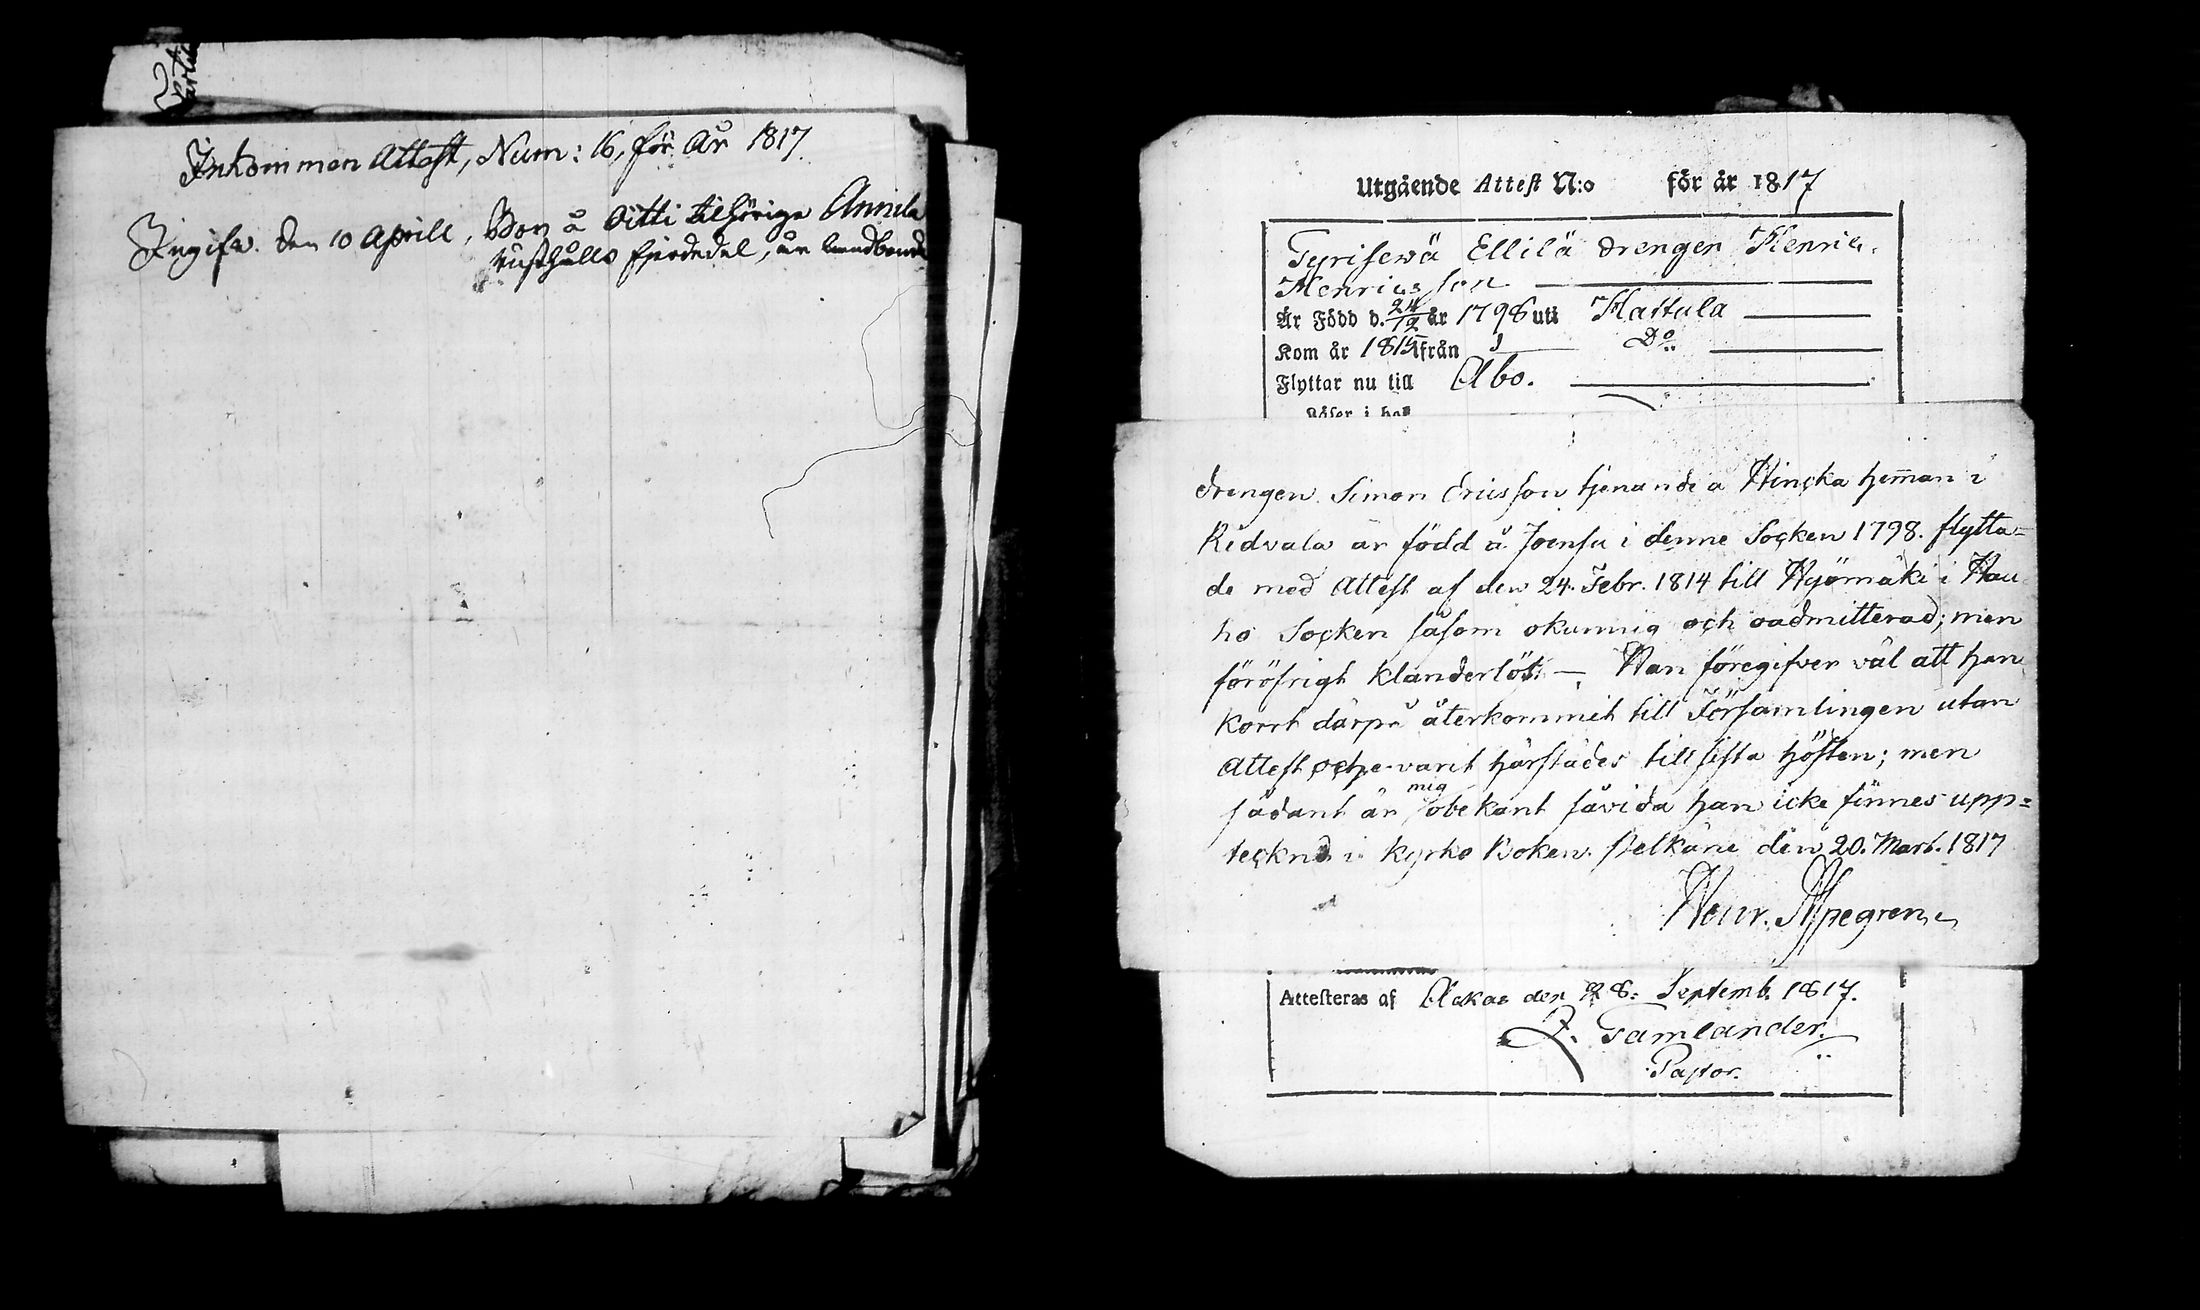 Inkommen Attest, Num: 16, för År 1817
Ingifv. den 10 Aprill, Bor å Oitti tilhörige Annila
rusthålls fjerdedel, är landbonde
Utgående Attest N:o för år 1817
Tyrisewä Ellilä drengen Henric
Henricsson
Är Född d. 24/12 år 1798 uti Hattula
Kom år 1815 ifrån Do
Flyttar nu till Åbo.
Läser i bok
drengen Simon Ericsson tjenande å Hincka heman i
Ridvala är född å Joensu i denne Socken 1798. flytta=
de med Attest af den 24. Febr. 1814 till Hyömäki i Hau
ho Socken såsom okunnig och oadmitterad; men
föröfrigt klanderlös. — Han föregifver väl att han
kort därpå återkommit till Församlingen utan
Attest och varit härstädes till sista hösten; men
sådant är mig obekant såvida han icke finnes upp=
tecknad i Kyrko Boken. Pelkäne den 20. Mart. 1817
Henr. Ypegren
Attesteras af Ackas den 28: Septemb. 1817.
Tamlander.
Pastor.